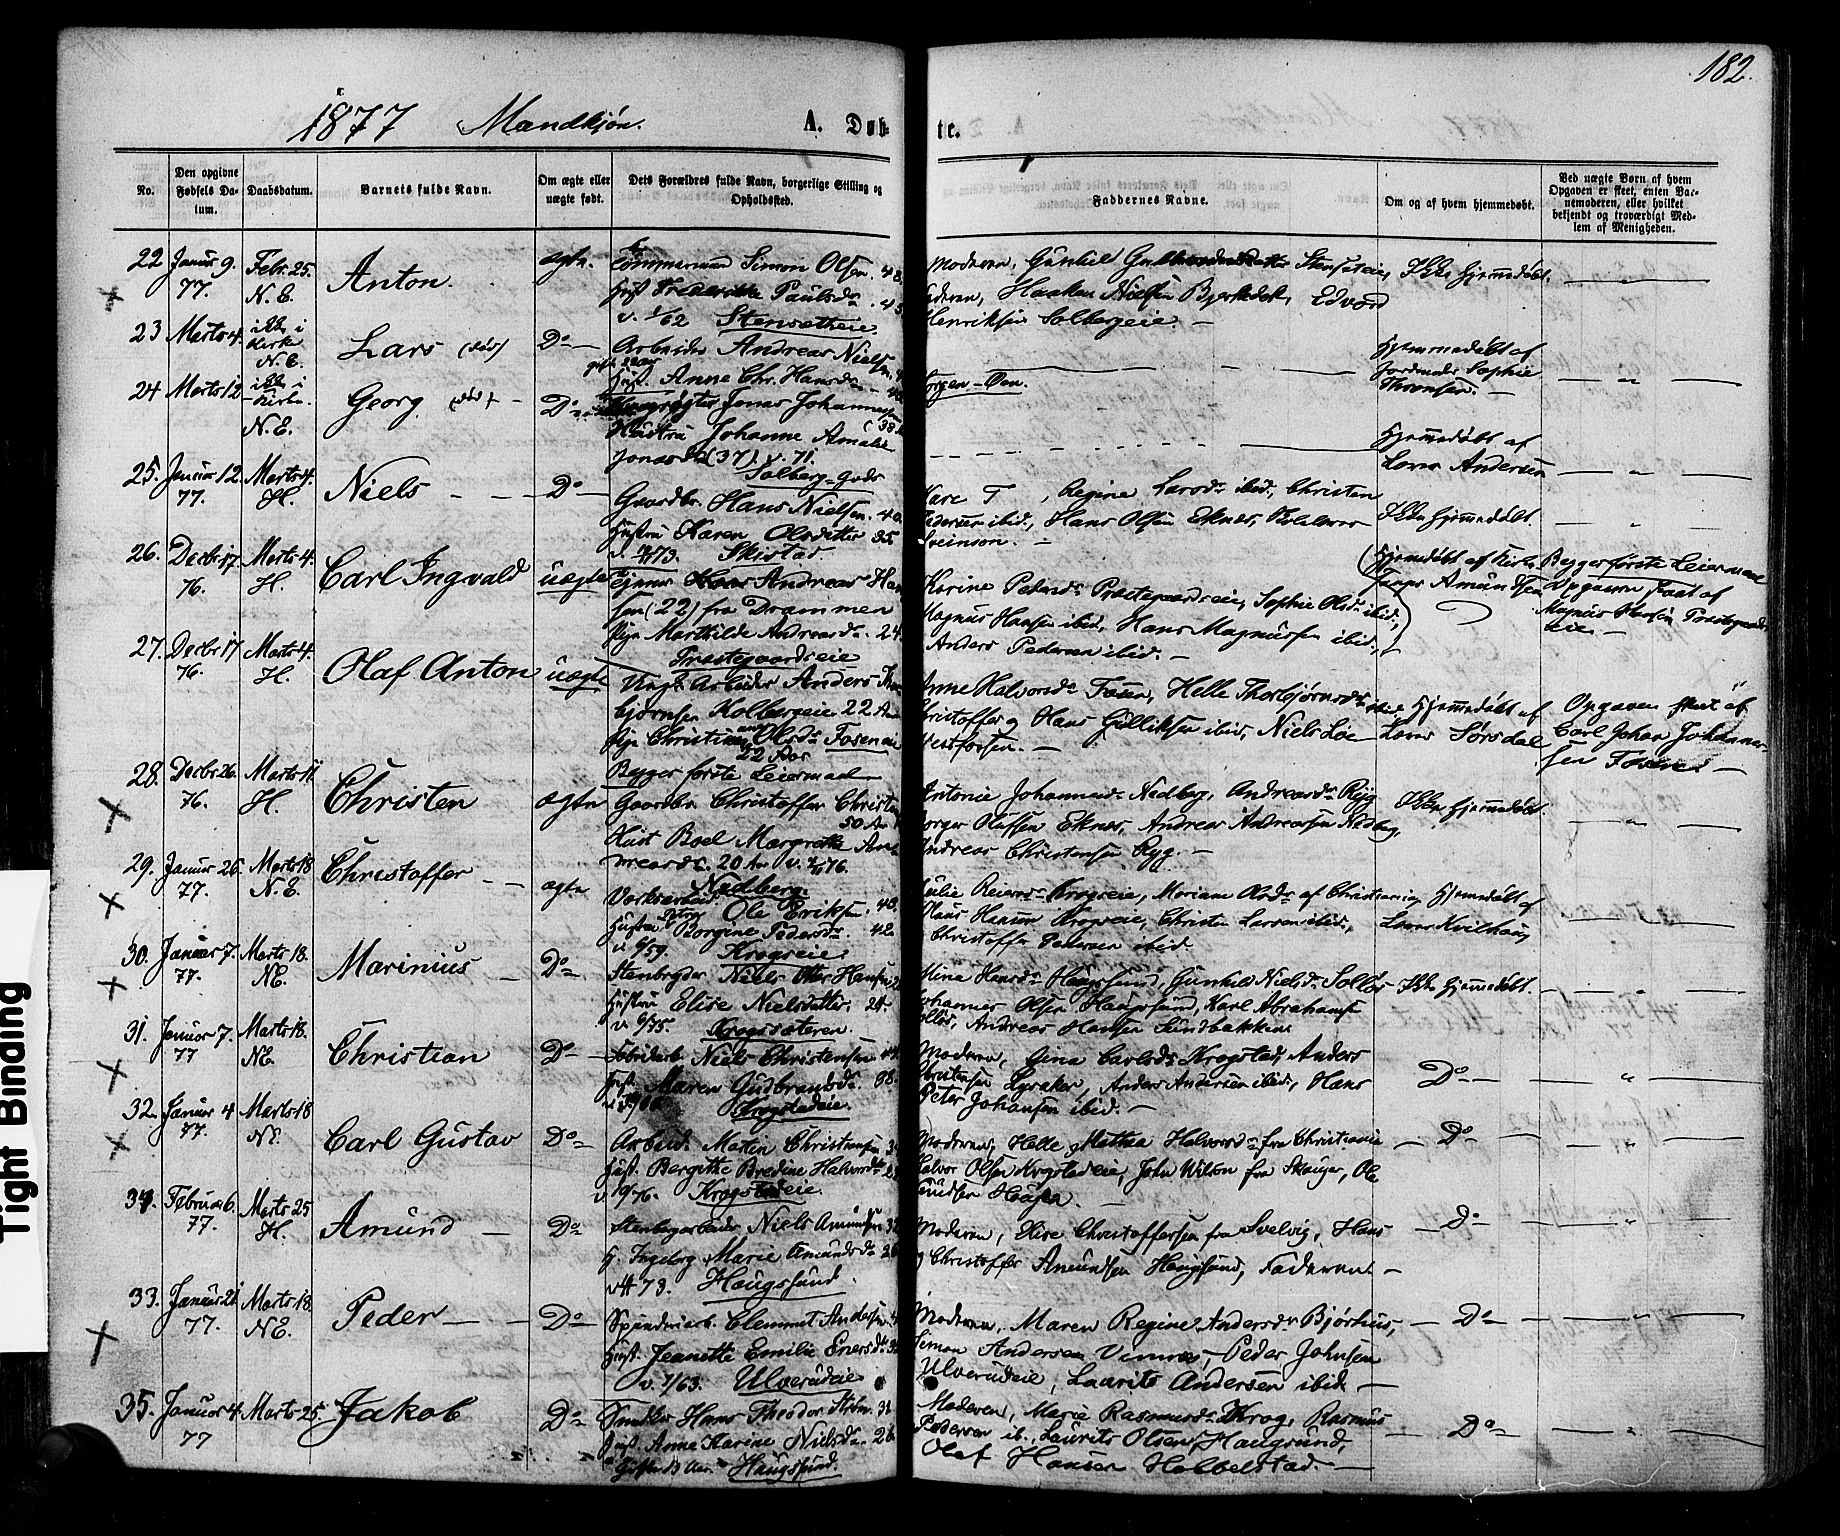 182.
1877 Mandkjøn. A. Døb-te.
No.
Den opgivne Fødsels Datum.
Daabsdatum.
Barnets fulde Navn.
Om ægte eller uægte født.
Dets Forældres fulde Navn, borgerlige Stilling og Opholdssted.
Faddernes Navne.
Om og af hvem hjemmedøbt.
Ved uægte Børn af hvem Opgaven er skeet, enten Barnemoderen, eller hvilket bekjendt og troværdigt Medlem af Menigheden.
22 Januar 9. 77. Febr. 25. N.E. Anton. ægte.
Tømmermand Simon Olsen. 48.
Hust. Frederikke Paulsdr. 45
v. 1/62 Stensætheie
Moderen, Gunhild
Faderen, Haaken Nielsen Bjerkedok, Edvard
Henriksen Solbergeie. —
Ikke hjemmedøbt.
23 Marts 4. ikke i Kirke N.E. Lars (død) Do —
Arbeider Andreas Nielsen
Hust. Anne Chr. Hansdr.
Hjemmedøbt af
Jordmoder Sophie
Thronsen. —
24 Marts 12 ikke i Kirke. N.E. Georg (død) Do
Jonas Johannesen
Hustru Johanne Amalie
Jonasdr (37) v. 71.
Solberg-Gods
Hjemmedøbt af
Lovise Andersen
25. Januar 12. 77. Marts 4. H. Niels - - - Do —
Gaardbr. Hans Nielsen. 40.
Hustru Karen Olsdatter 35.
v. 73. Skistad
Regine Larsdr ibid., Christen
Pedersen ibid., Hans Olsen Eknes,
Sveinson. —
Ikke hjemmedøbt.
26. Decbr 17. 76. Marts 4. H. Carl Ingvald uægte
Andreas Hansen (22) fra Drammen
Pige Marthilde Andreasdr. 24.
Præstegaardseie
Karine Pedersdr Præstegaardseie, Sophie Olsdr ibid.,
Magnus Hansen ibid., Hans Magnussen ibid.,
Anders Pedersen ibid. —
Hjemmedøbt af Kirke-
Amundsen
Begges første Leiermaal
Opgaven skeet af
Magnus Hansen Præstegaards-
eie —
27. Decbr 17 76. Marts 4. H. Olaf Anton uægte
Ungk. Arbeider Anders Thor-
bjørnsen Kolbergeie 22 Aar
Pige Christine Olsdr Fosen
22 Aar
Begges første Leiermaal
Anne Halvorsdr Fosen, Helle Thorbjørnsdr
Kristoffer og Hans Gulliksen ibid., Niels Loe
Vestfossen. —
Hjemmedøbt af
Lovise Sørsdal
Opgaven skeet af
Carl Johan Johanne-
sen Fosen —
28. Decbr 26. 76. Marts 11 H. Christen ægte
Gaardbr. Christoffer Christen
50 Aar
Hust Boel Margrethe An-
dreasdr. 20 Aar v. 76.
Nedberg.
Antonie Johannesdr Nedberg, Andreasdr Ryg
Olussen Eknes, Andreas Andreassen Nedberg,
Andreas Christensen Ryg. —
Ikke hjemmedøbt.
29. Januar 26. 77. Marts 18 N.E. Christoffer — ægte
Ole Eriksen. 43.
Hustru Borgine Pedersdr. 42.
v. 6/59. Krogseie.
Julie Reiersdr Krogseie, Mariane Olsdr af Christiania
Hans Hansen Krogseie, Christen Larsen ibid.,
Christoffer Pedersen ibid.
Hjemmedøbt af
Lovise Kvilhaug
30. Januar 7. 77. Marts 18. NE. Marinius — Do —
Stenbryder Niels Otter Hansen
Hustru Elise Nielsdatter. 24.
v. 6/75. Krogssæteren.
Mina Hansdr Haugsund, Gunhild Nielsdr Solløs
Johannes Olsen Haugsund, Karl Abrahamsen
Solløs, Andreas Hansen Sundbakken
Ikke hjemmedøbt.
31. Januar 7. 77 Marts 18. NE. Christian Do —
Fabrikarb Niels Christensen
Hust Maren Gudbrandsdr. 38.
Krogstadeie.
Moderen, Gina Carlsdr Krogstad, Anders
Christensen Lysaker, Anders Andersen ibid., Hans
Peter Johansen ibid. —
Do —
32. Januar 4 77. Marts 18 NE. Carl Gustav Do —
Arbeid. Martin Christensen
Hust. Bergithe Bredine Halvorsdr
v. 10/76. Krogstadeie.
Moderen, Helle Mathea Halvorsdr fra Christiania
Halvor Olsen Krogstadeie, John Wilson fra Skauger, Ole
— Do —
34. Februar 6. 77. Marts 25 H. Amund — Do
Niels Amundsen
H. Ingeborg Marie Amundsdr
73. Haugsund.
Moderen, Elise Christoffersen fra Svelvig, Hans
og Christoffer Amundsen Haugsund, Faderen —
— Do —
33. Januar 21 77. Marts 18. NE. Peder — — Do —
Spinderiarb. Clemmet Andersen
Hust. Jeanette Emilie Enersdr
v. 1/63. Ulverudeie
Moderen, Maren Regine Andersdr Bjørhus,
Simon Andersen Vimnes, Peder Johnsen
Ulverudeie, Laurits Andersen ibid —
— Do —
35. Januar 4. 77 Marts 25. Jakob Do —
Snedker Hans Theodor 31
Hust. Anne Karine Nielsdr. 26.
Haugsund.
Moderen, Marie Rasmusdr Krog, Rasmus
Pedersen ib., Laurits Olsen Haugsund,
Olaf Hansen Hobbelstad. —
— Do —
Tight Binding